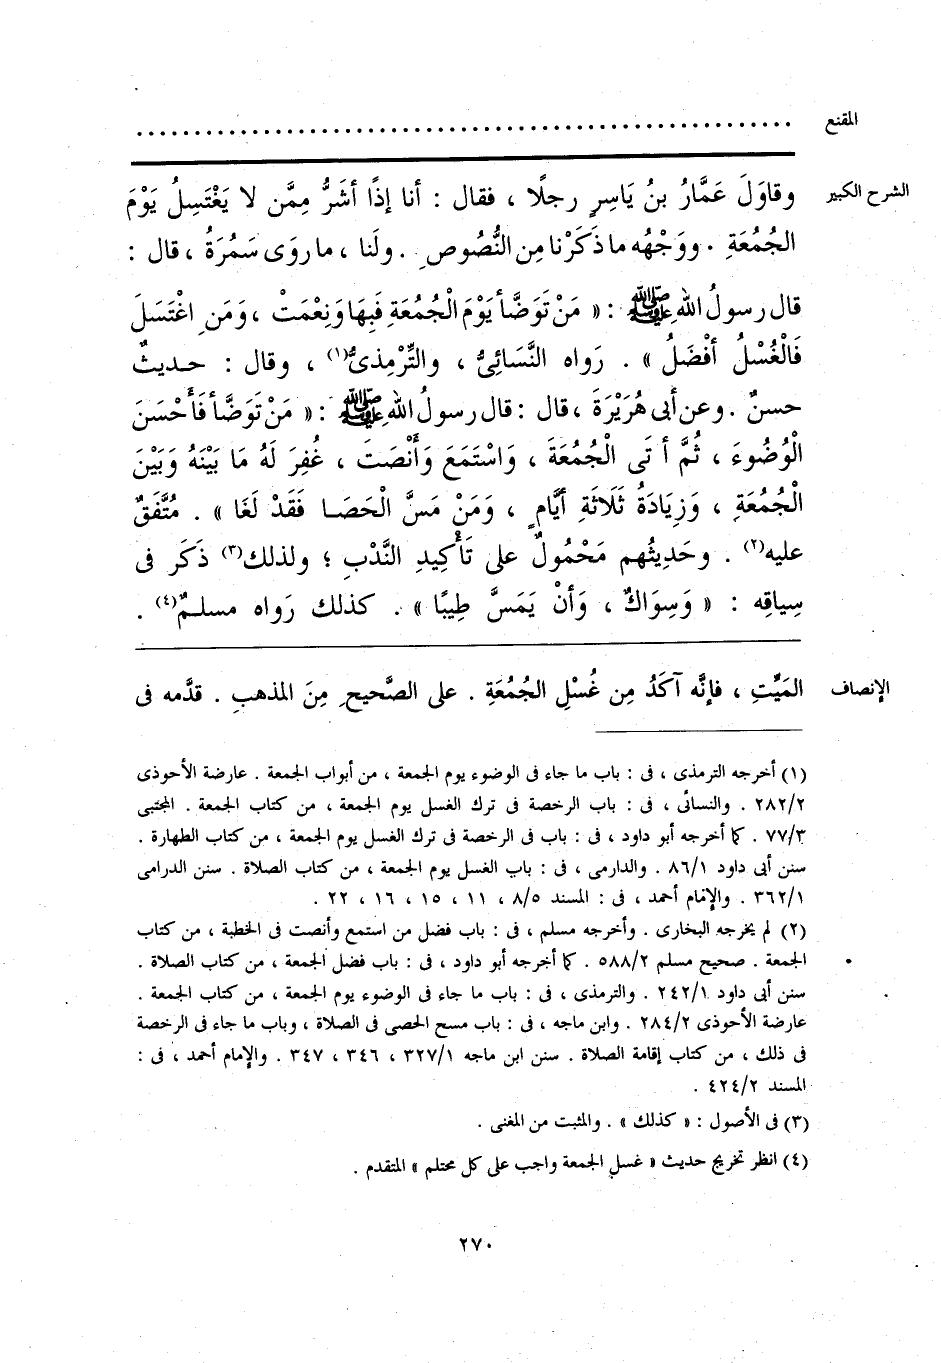 المقنع ........................................................
الشرح الكبير وقاوَلَ عَمَّارُ بنُ يَاسِرٍ رجلًا ، فقال : أنا إذًا أشَرُّ مِمَّن لا يَغْتَسِلُ يَوْمَ
الجُمُعَةِ . ووَجْهُه ما ذَكَرْنا مِن النُّصُوصِ . ولَنا ، ما روَى سَمُرَةُ ، قال :
قال رسولُ اللهِ ﷺ : « مَنْ تَوَضَّأ يَوْمَ الْجُمُعَةِ فَبِهَا وَنِعْمَتْ ، وَمَنِ اغْتَسَلَ
فَالْغُسْلُ أفْضَلُ » . رَواه النَّسَائِىُّ ، والتِّرْمِذىُّ(١) ، وقال : حـديثٌ
حسنٌ . وعن أبى هُرَيْرَةَ ، قال : قال رسولُ اللهِ ﷺ : « مَنْ تَوَضَّأ فَأَحْسَنَ
الْوُضُوءَ ، ثُمَّ أَتَى الْجُمُعَةَ ، وَاسْتَمَعَ وَأَنْصَتَ ، غُفِرَ لَهُ مَا بَيْنَهُ وَبَيْنَ
الْجُمُعَةِ ، وَزِيَادَةُ ثَلَاثَةِ أيَّامٍ ، وَمَنْ مَسَّ الْحَصَـا فَقَدْ لَغَا » . مُتَّفَقٌ
عليه(٢) . وحَدِيثُهم مَحْمُولٌ على تَأْكِيدِ النَّدْبِ ؛ ولذلك(٣) ذَكَر فى
سِياقِه : « وَسِوَاكٌ ، وَأنْ يَمَسَّ طِيبًا » . كذلك رَواه مسلـمٌ(٤) .
الإنصاف المَيِّتِ ، فإنَّه آكَدُ مِن غُسْلِ الجُمُعَةِ . على الصَّحيحِ مِنَ المذهبِ . قدَّمه فى
(١) أخرجه الترمذى ، فى : باب ما جاء فى الوضوء يوم الجمعة ، من أبواب الجمعة . عارضة الأحوذى
٢٨٢/٢ . والنسائى ، فى : باب الرخصة فى ترك الغسل يوم الجمعة ، من كتاب الجمعة . المجتبى
٧٧/٣ . كما أخرجه أبو داود ، فى : باب فى الرخصة فى ترك الغسل يوم الجمعة ، من كتاب الطهارة .
سنن أبى داود ٨٦/١ . والدارمى ، فى : باب الغسل يوم الجمعة ، من كتاب الصلاة . سنن الدرامى
٣٦٢/١ . والإمام أحمد ، فى : المسند ٨/٥ ، ١١ ، ١٥ ، ١٦ ، ٢٢ .
(٢) لم يخرجه البخارى . وأخرجه مسلم ، فى : باب فضل من استمع وأنصت فى الخطبة ، من كتاب
الجمعة . صحيح مسلم ٥٨٨/٢ . كما أخرجه أبو داود ، فى : باب فضل الجمعة ، من كتاب الصلاة .
سنن أبى داود ٢٤٢/١ . والترمذى ، فى : باب ما جاء فى الوضوء يوم الجمعة ، من كتاب الجمعة .
عارضة الأحوذى ٢٨٤/٢ . وابن ماجه ، فى : باب مسح الحصى فى الصلاة ، وباب ما جاء فى الرخصة
فى ذلك ، من كتاب إقامة الصلاة . سنن ابن ماجه ٣٢٧/١ ، ٣٤٦ ، ٣٤٧ . والإمام أحمد ، فى :
المسند ٤٢٤/٢ .
(٣) فى الأصول : « كذلك » . والمثبت من المغنى .
(٤) انظر تخريج حديث « غسل الجمعة واجب على كل محتلم » المتقدم .
٢٧٠